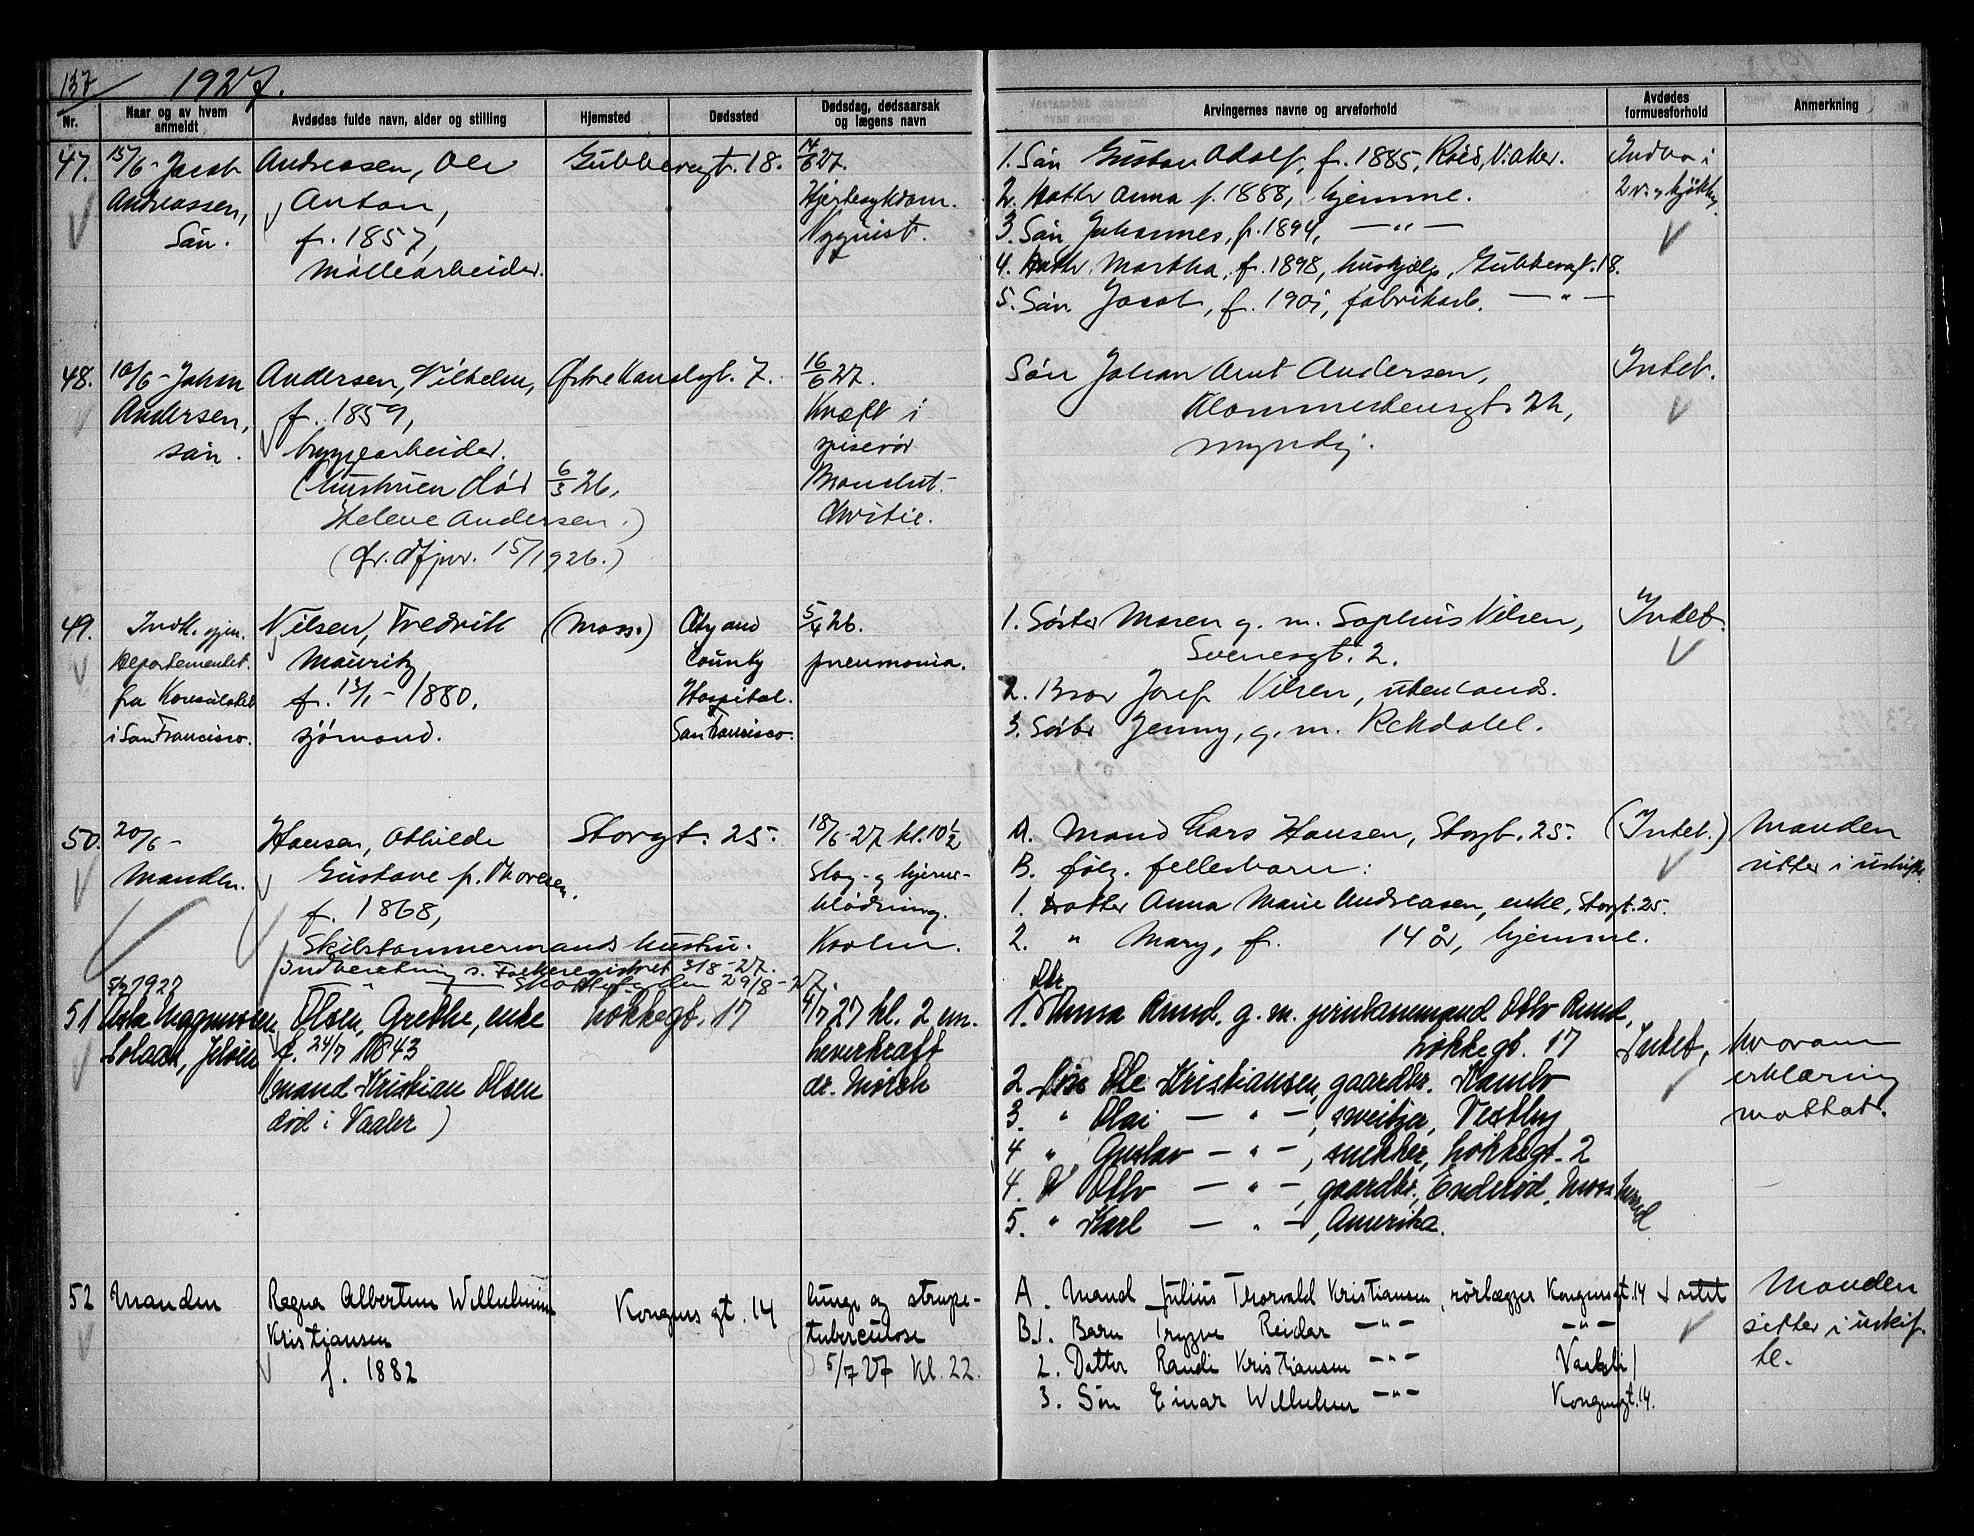 137
1927.
Nr.
Naar og av hvem anmeldt
Avdødes fulde navn, alder og stilling
Hjemsted
Dødssted
Dødsdag, dødsaarsak og lægens navn
Arvingernes navne og arveforhold
Avdødes formuesforhold
Anmerkning
47.
15/6 - Jacob
Andreassen,
Søn.
Andreasen, Ole
Anton,
f. 1857,
Møllearbeider.
Gubbevegt. 18.
14/6 27.
Hjertesykdom.
Nyquist.
1. Søn Gustav Adolf, f. 1885, V. Aker.
2. Datter Anna f. 1888, hjemme.
3. Søn Johannes, f. 1894, — " —
4. Datter Martha, f. 1898, hushjælp, Gubbevegt. 18.
5. Søn Jacob, f. 1901, fabrikarb. — " —
Indbo i
2 v. og kjøkken.
48.
Johan
Andersen,
søn.
Andersen, Vilhelm,
f. 1859,
bryggearbeider.
(hustruen død 6/3 26,
Helene Andersen.)
(Cfr. dfjur. 15/1926.)
Østre Kanalgt. 7.
16/6 27.
Kræft i
spiserør
Christie.
Søn Johan Arnt Andersen,
22,
myndig.
Intet.
49.
Indb. gjen.
departementet
fra Konsulatet
i San Francisco.
Nilsen, Fredrik
Mauritz,
f. 13/1 - 1880,
sjømand.
(Moss.)
City and
County
Hospital.
San Francisco.
5/4 26.
pneumonia.
1. Søster Maren g. m. Sophus Nilsen,
Svenesgt. 2.
2. Bror Josef Nilsen, utenlands.
3. Søster Jenny, g. m. Rekdahl.
Intet.
50.
20/6 -
Manden.
Hansen, Othilde
Gustave f. Thoresen.
f. 1868,
Skibstømmermands hustru.
Indberetning s. Folkeregistret 31/8 - 27.
— " — Skattefogden 29/8 - 27.
Storgt. 25.
18/6 - 27 kl. 10 1/2
Slag - og hjerne-
blødning.
A. Mand Lars Hansen, Storgt. 25.
B. følg. fellesbarn:
1. Datter Anna Marie Andreasen, enke, Storgt. 25.
2. " Mary, f. 14 år, hjemme.
(Intet.)
Manden
sitter i uskifte.
51
5/7 1927
Asta Magnussen
Solaas, Jeløen
Olsen, Grethe, enke
f. 24/7 1843
(mand Kristian Olsen
død i Vaaler)
Løkkegt. 17
4/7 27 kl. 2 em.
Leverkræft
dr. Mørch
Dtr.
1. Anna Rund. g. m. jerntømmermand Otto Rund,
Løkkegt. 17
2 Søn Ole Kristiansen, gaardbr. Kambo
3. " Olai — " —, sveitser, Vestby
4 " Gustav — " —, snekker, Løkkegt. 2
4. " Otto — " —, gaardbr., Enderød, Moss herred
5. " Karl — " —, Amerika.
Intet,
hvorom
erklæring
mottat.
52
Manden
Ragna Albertine Wilhelmine
Kristiansen
f. 1882
Kongens gt. 14
Lunge og strupe-
tuberculose
5/7 27 kl. 22.
A. Mand Julius Thorvald Kristiansen, rørlægger Kongensgt. 14
B. 1. Barn Trygve Reidar — " — — " —
2. Datter Randi Kristiansen — " —
3. Søn Einar Wilhelm — " — Kongensgt. 14.
Manden
sitter i uskif-
te.